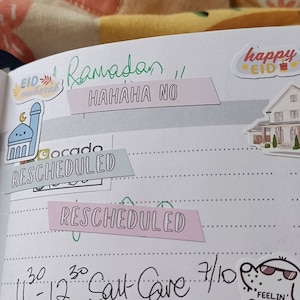 EID
Ramadan !!
happy
EID
HAHAHA NO
ocado
RESCHEDULED
RESCHEDULED
11³⁰-12³⁰ Salt Cave 7/10
FEELIN